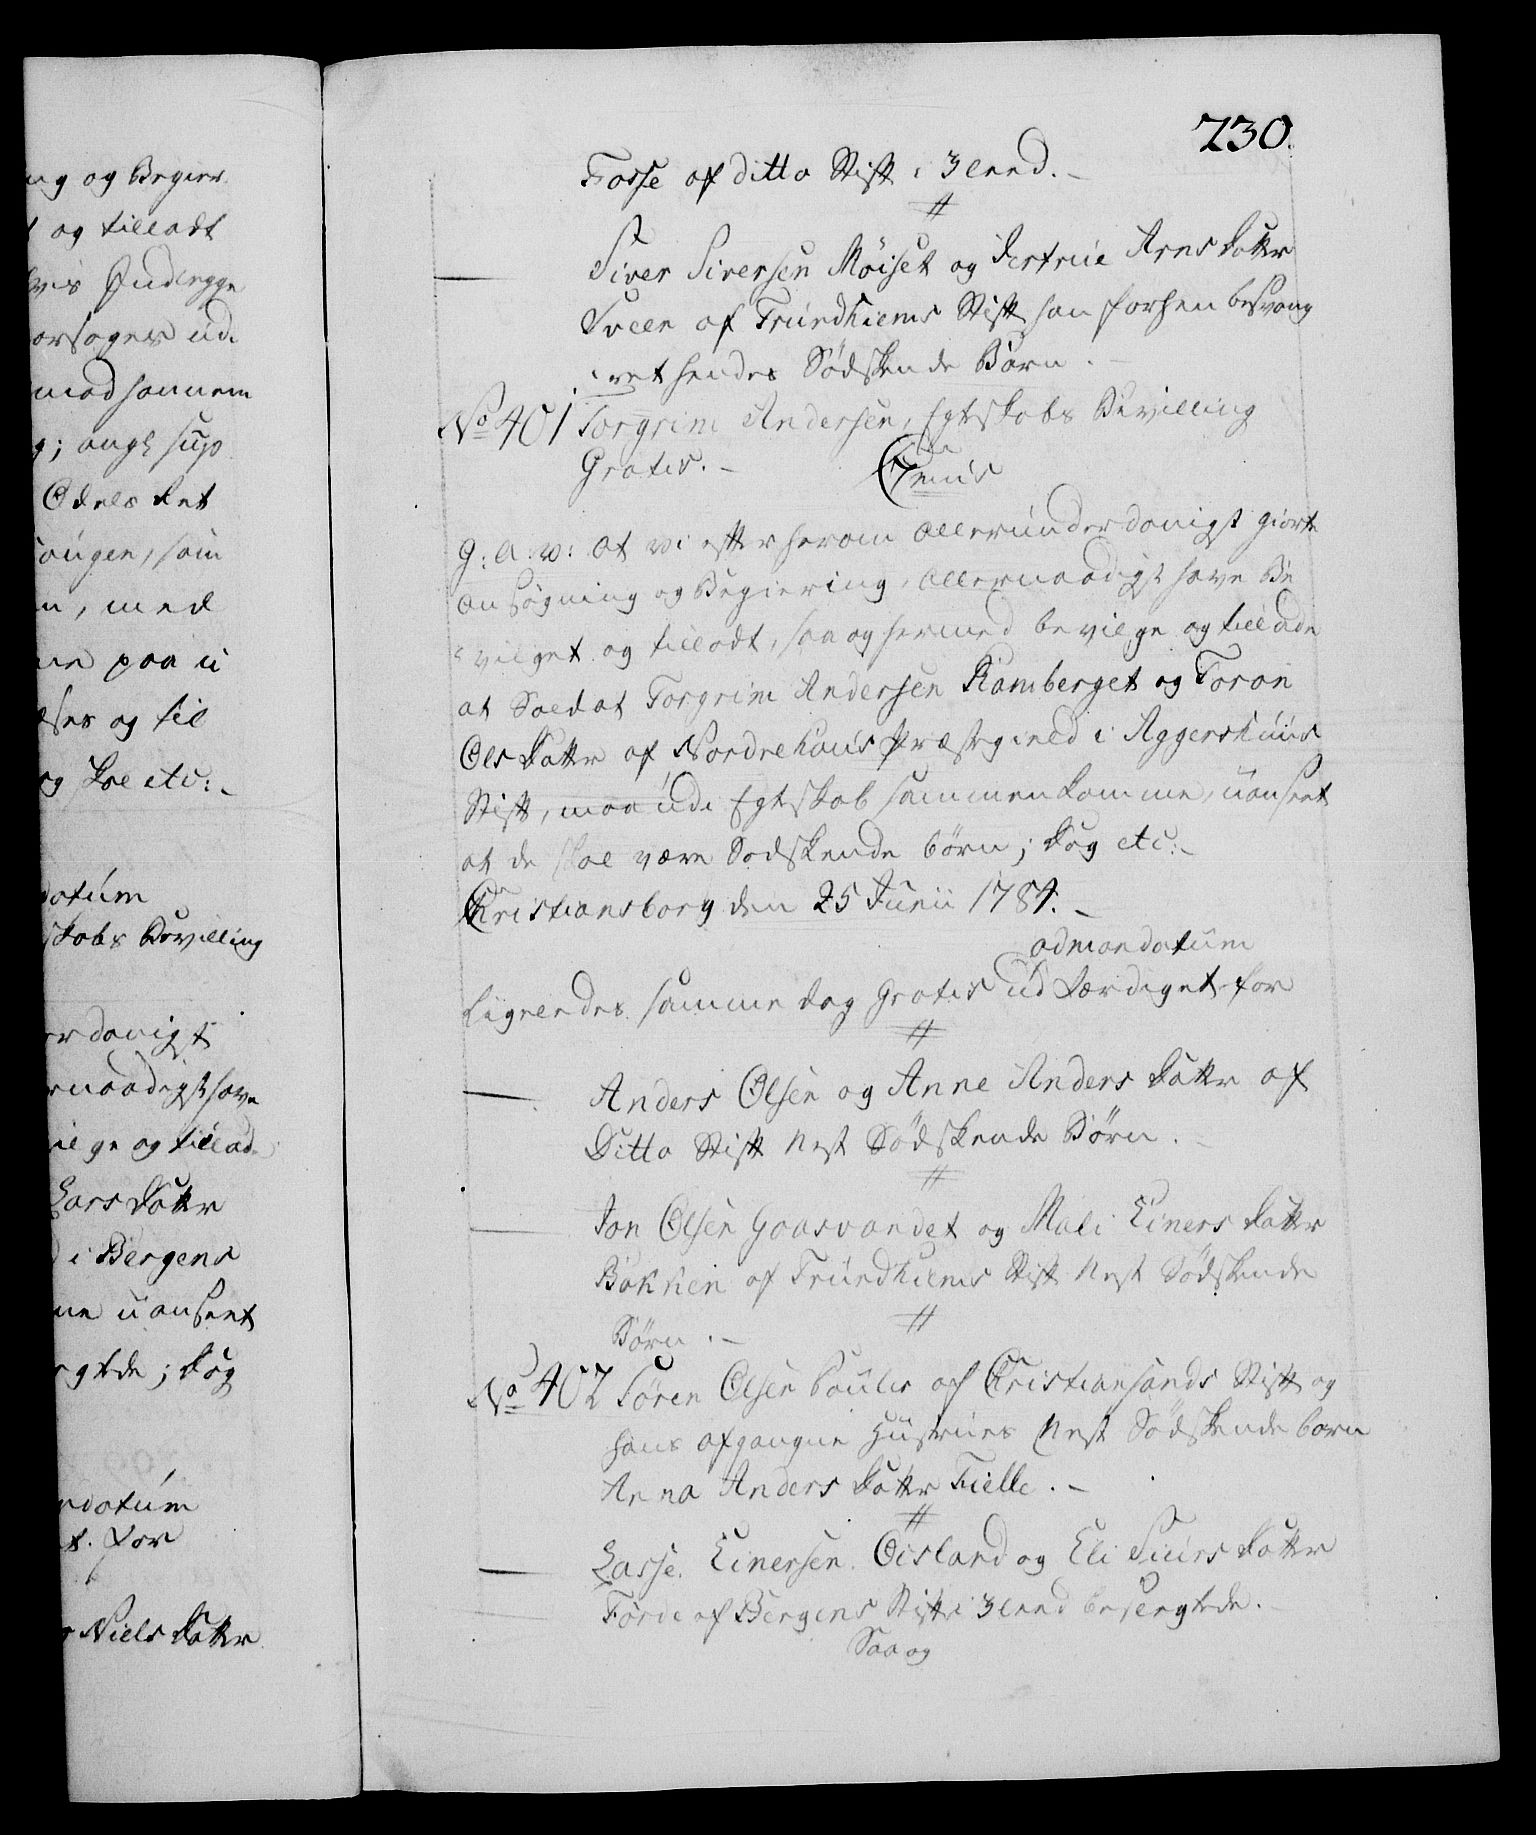 ng og Begier
og tilladt
vis Indlegge
orsages udi
mod hannem
g; angl. Sup
Odels Ret
ougen, som
n, med
ne paa u
og til
og skal etc:
datum
skabs Bevilling
erdanigst
rnaadigst have
ilge og tillad
Lars Datter
i Bergens
ne uanseet
gtede; dog
ndatum
t. for
Niels Datter
730.
Fosse af ditto Stift i 3 leed.
//
Siver Siversen Møiset og Giertrue Arns datter
Sveen af Trundhiems Stift han forhen besvang
ret hendes Sødskende Barn.
No 401 Torgrim Andersen, Egtskabs Bevilling
Gratis.
C 7mus
G: A: V: at vi efter herom allerunderdanigst giorte
Ansøgning og Begiering, allernaadigst have Be
vilget og tilladt, saa og hermed bevilge og tillade
at Soldat Torgrim Andersen Ramberget og Toron
Ols datter af Nordrehous Præstegield i Aggershuus
Stift, maa udi Egtskab sammenkomme, uanseet
at de skal være Sødskende børn; dog etc:
Christiansborg den 25 Junii 1784.
ad mandatum
Ligeledes samme dag Gratis udfærdiget for
//
Anders Olsen og Anne Anders datter af
Ditto Stift Nest Sødskende Børn.
//
Jon Olsen Gaasvandet og Mali Einers datter
Bakken af Trundhiems Stift Nest Sødskende
Børn.
//
No 402 Søren Olsen Poulis af Christiansands Stift og
hans afgangne Hustrues Nest Sødskende barn
Anna Anders datter Fielle.
//
Lasse Einersen Øisland og Eli Siurs datter
Førde af Bergens Stift i 3 leed besvogrede.
Saa og